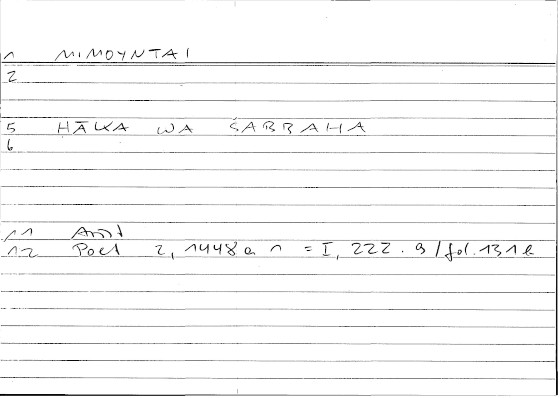 1 MIMOYNTAI
2
5 HĀKA WA ŠABBAHA
6
11 Arist
12 Poet 2, 1448 a 1 = I, 222.9/fol.131 b